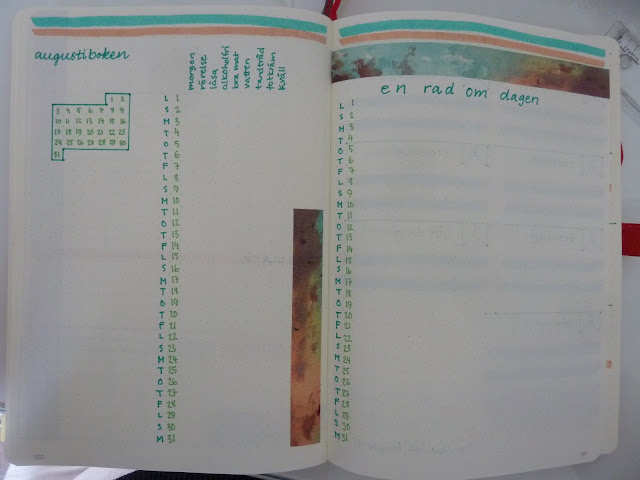 augustiboken
morgon
rörelse
läsa
alkoholfri
bra mat
vatten
tandtråd
fotkräm
kväll
1 2
3 4 5 6 7 8 9
10 11 12 13 14 15 16
17 18 19 20 21 22 23
24 25 26 27 28 29 30
31
L 1
S 2
M 3
T 4
O 5
T 6
F 7
L 8
S 9
M 10
T 11
O 12
T 13
F 14
L 15
S 16
M 17
T 18
O 19
T 20
F 21
L 22
S 23
M 24
T 25
O 26
T 27
F 28
L 29
S 30
M 31
en rad om dagen
L 1
S 2
M 3
T 4
O 5
T 6
F 7
L 8
S 9
M 10
T 11
O 12
T 13
F 14
L 15
S 16
M 17
T 18
O 19
T 20
F 21
L 22
S 23
M 24
T 25
O 26
T 27
F 28
L 29
S 30
M 31